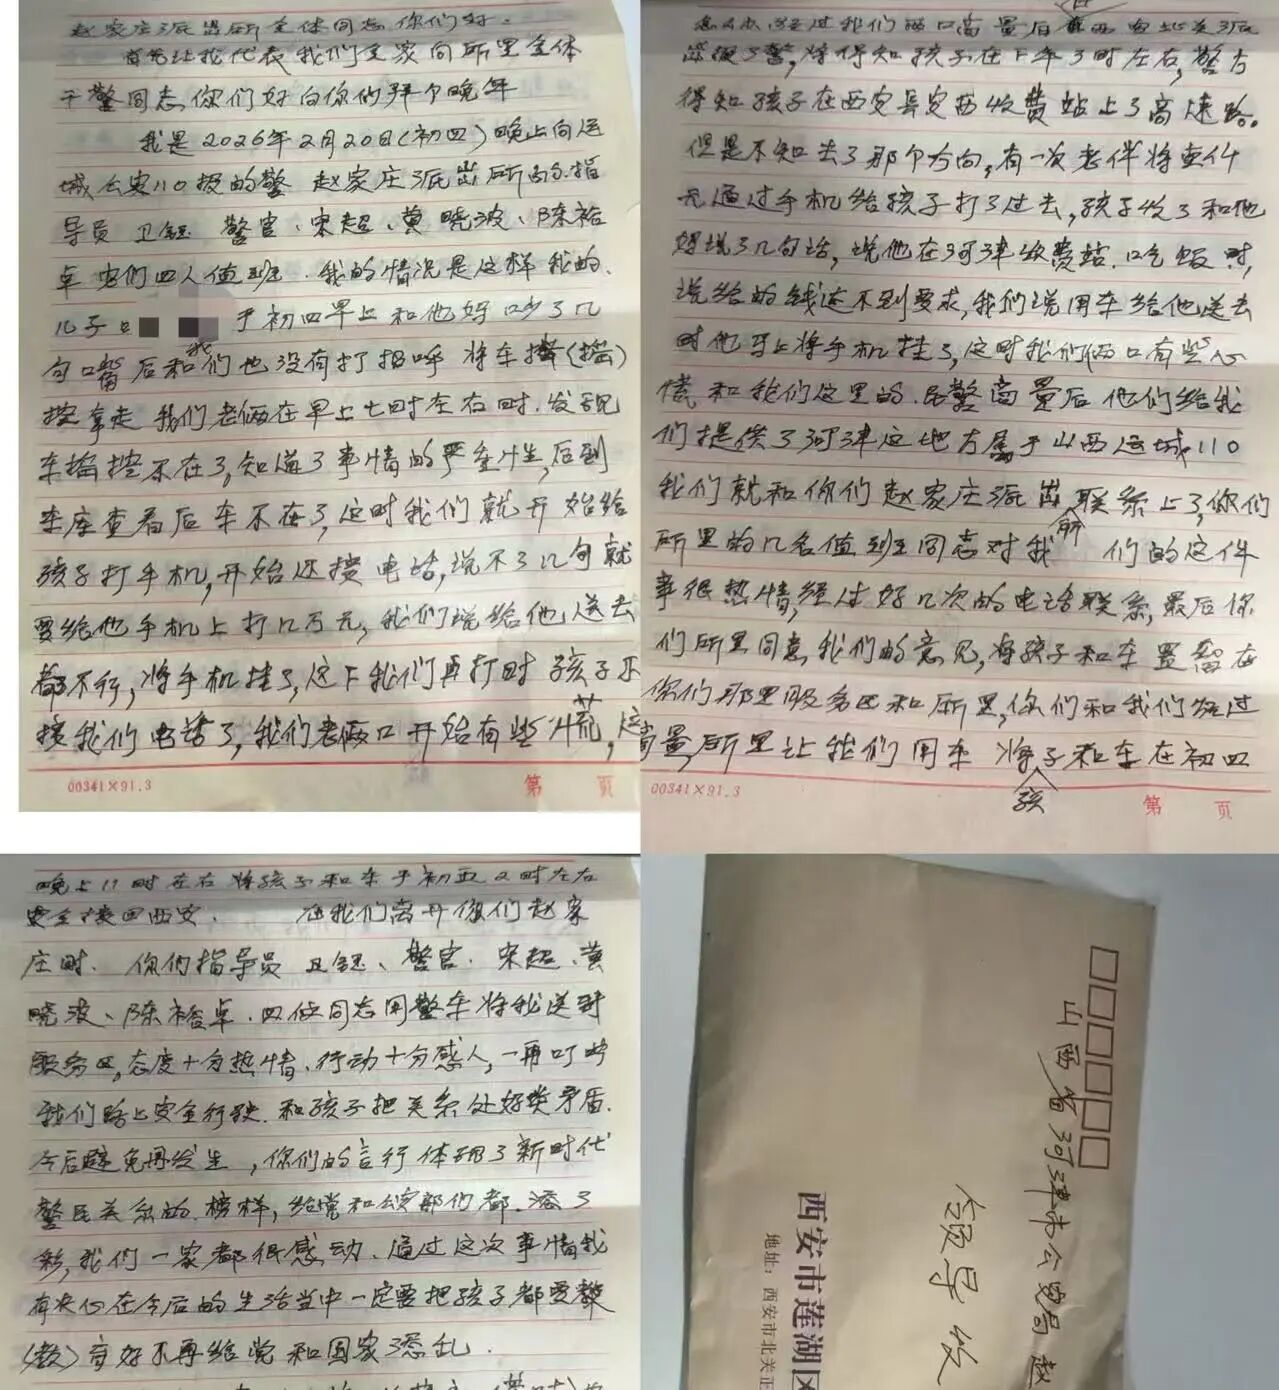 赵家庄派出所全体同志你们好.
首先让我代表我们全家向所里全体
干警同志,你们好向你们拜个晚年
我是2026年2月20日(初四)晚上向运
城公安110报的警 赵家庄派出所的指
导员 卫钰 警官、宋超、黄晓波、陈裕
卓 你们四人值班.我的情况是这样我的.
儿子 于初四早上和他妈吵了几
句嘴后和我们也没有打招呼 将车
控拿走 我们老俩在早上七时左右时.发现
车摇控不在了,知道了事情的严重性,后到
车库查看后车不在了,这时我们就开始给
孩子打手机,开始还接电话,说不了几句就
要给他手机上打几万元,我们说给他送去
都不行,将手机挂了,这下我们再打时孩子不
接我们电话了,我们老俩口开始有些慌,这
我们两口商量后
报了警,将得知孩子在下午3时左右,警方
得知孩子在西安长安西收费站上了高速路.
但是不知去了那个方向,有一次老伴将壹仟
元通过手机给孩子打了过去,孩子收了和他
妈说了几句话,说他在河津收费站.吃饭时,
说给的钱达不到要求,我们说用车给他送去
时他马上将手机挂了,这时我们俩口有些心
慌和我们这里的.民警商量后他们给我
们提供了河津这地方属于山西运城110
我们就和你们赵家庄派出所联系上了,你们
所里的几名值班同志对我们的这件
事很热情,经过好几次的电话联系,最后你
们所里同意我们的意见,将孩子和车置留在
你们那里服务区和所里,你们和我们经过
商量,所里让我们用车 将孩子和车在初四
00341×91.3 第 页
00341×91.3 第 页
晚上11时左右将孩子和车于初五2时左右
安全接回西安. 在我们离开你们赵家
庄时.你们指导员 卫钰、警官.宋超.黄
晓波、陈裕卓.四位同志用警车将我送到
服务区,态度十分热情、行动十分感人,一再叮咛
我们路上安全行驶.和孩子把关系处好类矛盾.
今后避免再发生,你们的言行体现了新时代
警民关系的.榜样,给党和公安部们都.添了
彩,我们一家都很感动.通过这次事情我
有决心在今后的生活当中一定要把孩子都要教
(教)育好不再给党和国家添乱.
山西省河津市公安局赵
领导收
西安市莲湖区
地址:西安市北关正